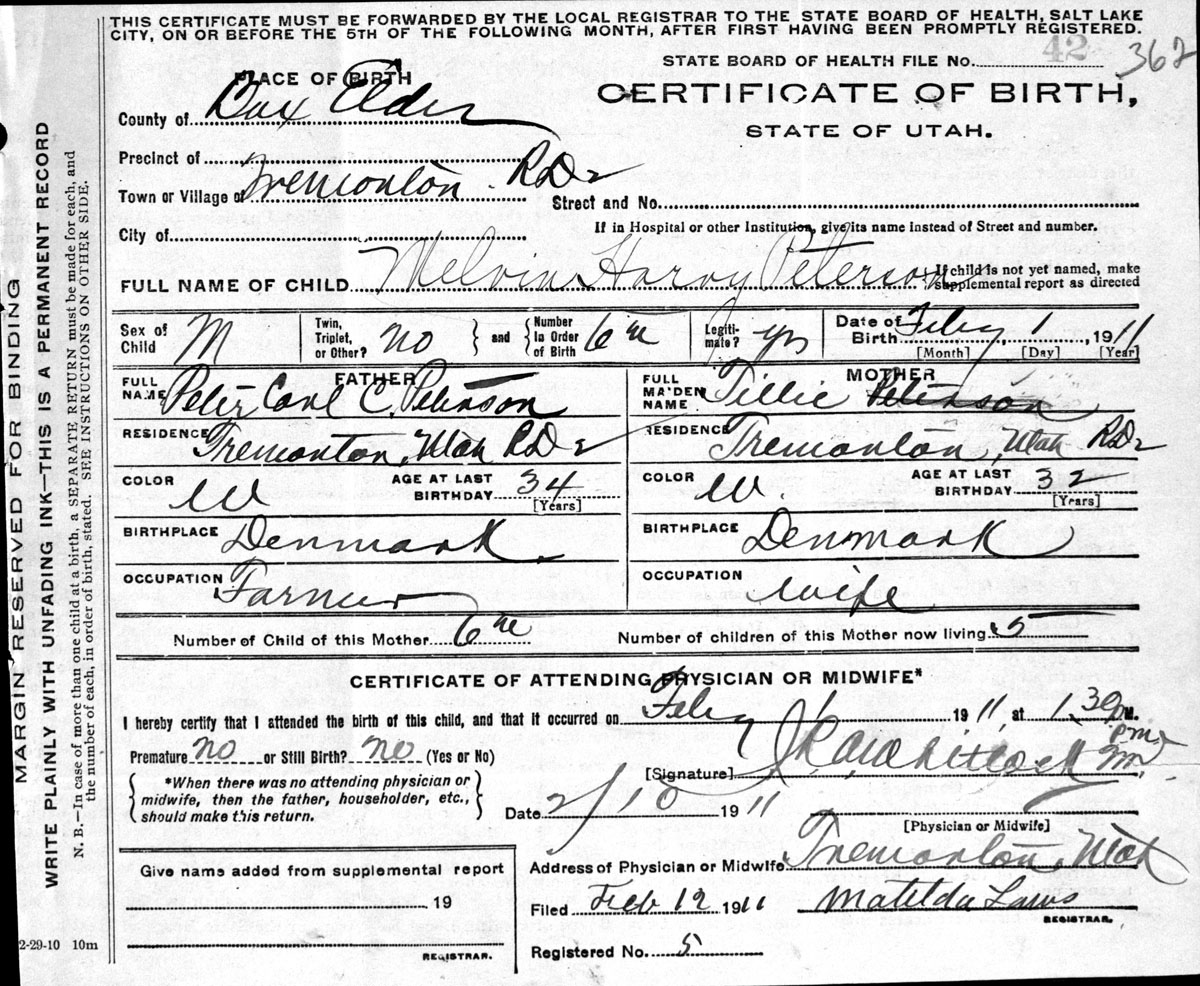 THIS CERTIFICATE MUST BE FORWARDED BY THE LOCAL REGISTRAR TO THE STATE BOARD OF HEALTH, SALT LAKE
CITY, ON OR BEFORE THE 5TH OF THE FOLLOWING MONTH, AFTER FIRST HAVING BEEN PROMPTLY REGISTERED.
STATE BOARD OF HEALTH FILE No. 42 362
PLACE OF BIRTH
CERTIFICATE OF BIRTH,
STATE OF UTAH.
County of Box Elder
Precinct of
Town or Village of Tremonton RD2
Street and No.
If in Hospital or other Institution, give its name instead of Street and number.
City of
FULL NAME OF CHILD Melvin Harvy Peterson
If child is not yet named, make
supplemental report as directed
Sex of Child M Twin, Triplet, or Other? no and Number in Order of Birth 6th Legitimate? yes Date of Birth Feby 1 1911
[Month] [Day] [Year]
FATHER MOTHER
FULL NAME Peter Carl C. Peterson FULL MAIDEN NAME Tillie Peterson
RESIDENCE Tremonton, Utah RD2 RESIDENCE Tremonton, Utah RD2
COLOR W AGE AT LAST BIRTHDAY 34 [Years] COLOR W. AGE AT LAST BIRTHDAY 32 [Years]
BIRTHPLACE Denmark BIRTHPLACE Denmark
OCCUPATION Farmer OCCUPATION wife
Number of Child of this Mother 6th Number of children of this Mother now living 5
CERTIFICATE OF ATTENDING PHYSICIAN OR MIDWIFE*
I hereby certify that I attended the birth of this child, and that it occurred on Feby 1 1911, at 1.30 PM.
pm.
Premature no or Still Birth? no (Yes or No)
[Signature]
*When there was no attending physician or
midwife, then the father, householder, etc.,
should make this return.
Date 2/10 1911
[Physician or Midwife]
Address of Physician or Midwife Tremonton, Utah
Give name added from supplemental report
19
REGISTRAR.
Filed Feb 12 1911 Matilda Laws
REGISTRAR.
Registered No. 5
MARGIN RESERVED FOR BINDING
WRITE PLAINLY WITH UNFADING INK—THIS IS A PERMANENT RECORD
N. B.—In case of more than one child at a birth, a SEPARATE RETURN must be made for each, and
the number of each, in order of birth, stated. SEE INSTRUCTIONS ON OTHER SIDE.
2-29-10 10m